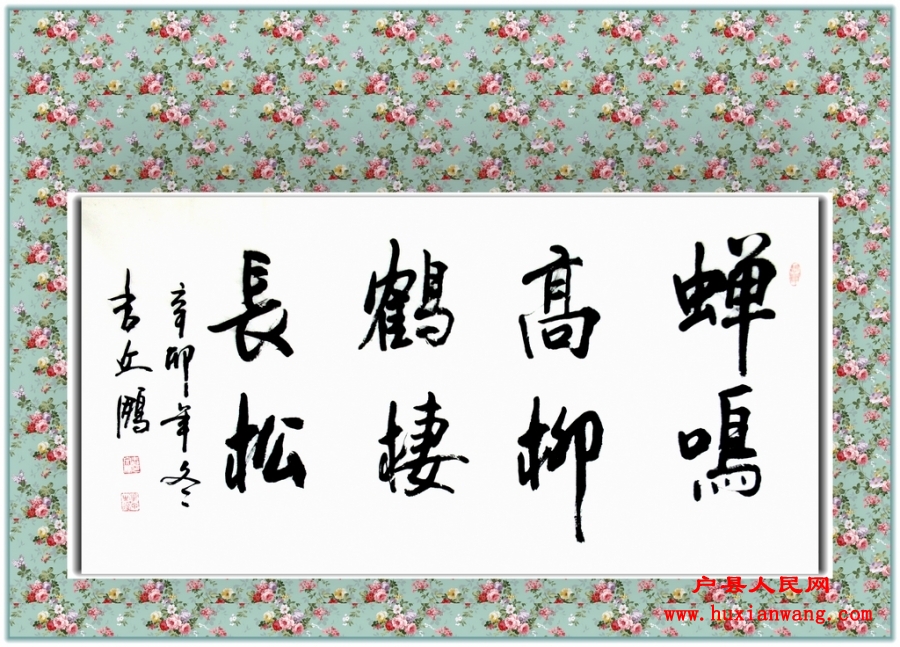 蝉鳴
髙柳
鶴棲
長松
辛卯年冬
鵬
户县人民网
www.huxianwang.com